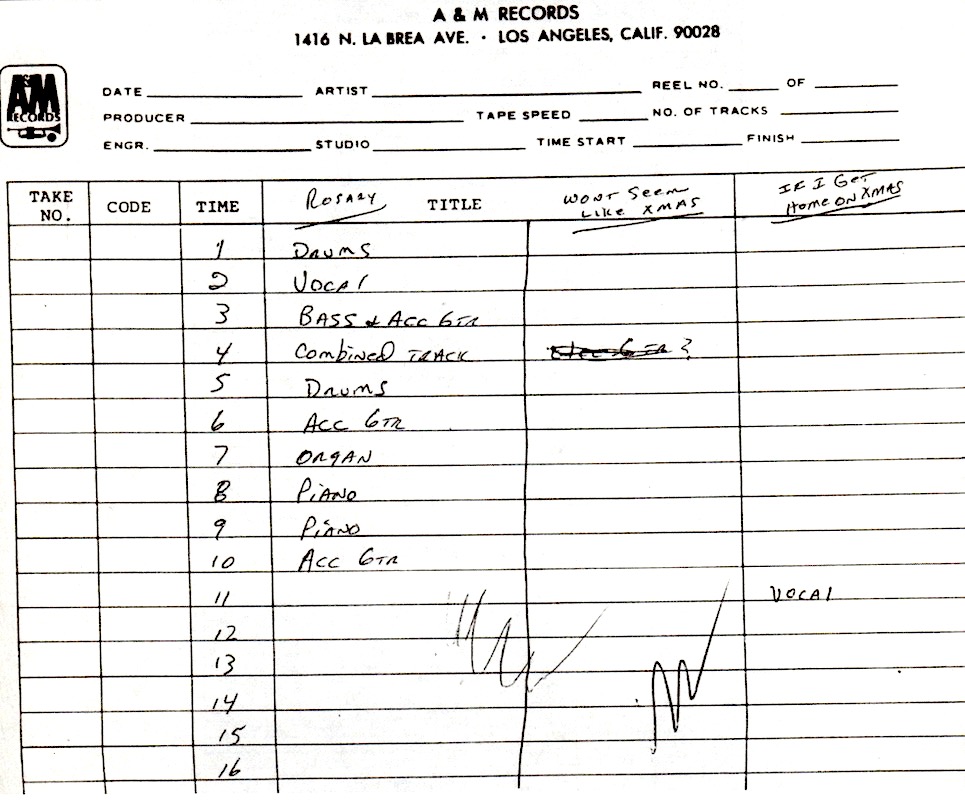 A & M RECORDS
1416 N. LA BREA AVE. · LOS ANGELES, CALIF. 90028
A&M RECORDS
DATE ARTIST REEL NO. OF
PRODUCER TAPE SPEED NO. OF TRACKS
ENGR. STUDIO TIME START FINISH
TAKE NO. CODE TIME ROSARY TITLE WONT SEEM LIKE XMAS IF I GET HOME ON XMAS
1 DRUMS
2 VOCAl
3 BASS & ACC GTR
4 Combined TRACK ?
5 DRUMS
6 ACC GTR
7 ORGAN
8 PiANO
9 PiANO
10 ACC GTR
11 VOCAl
12
13
14
15
16